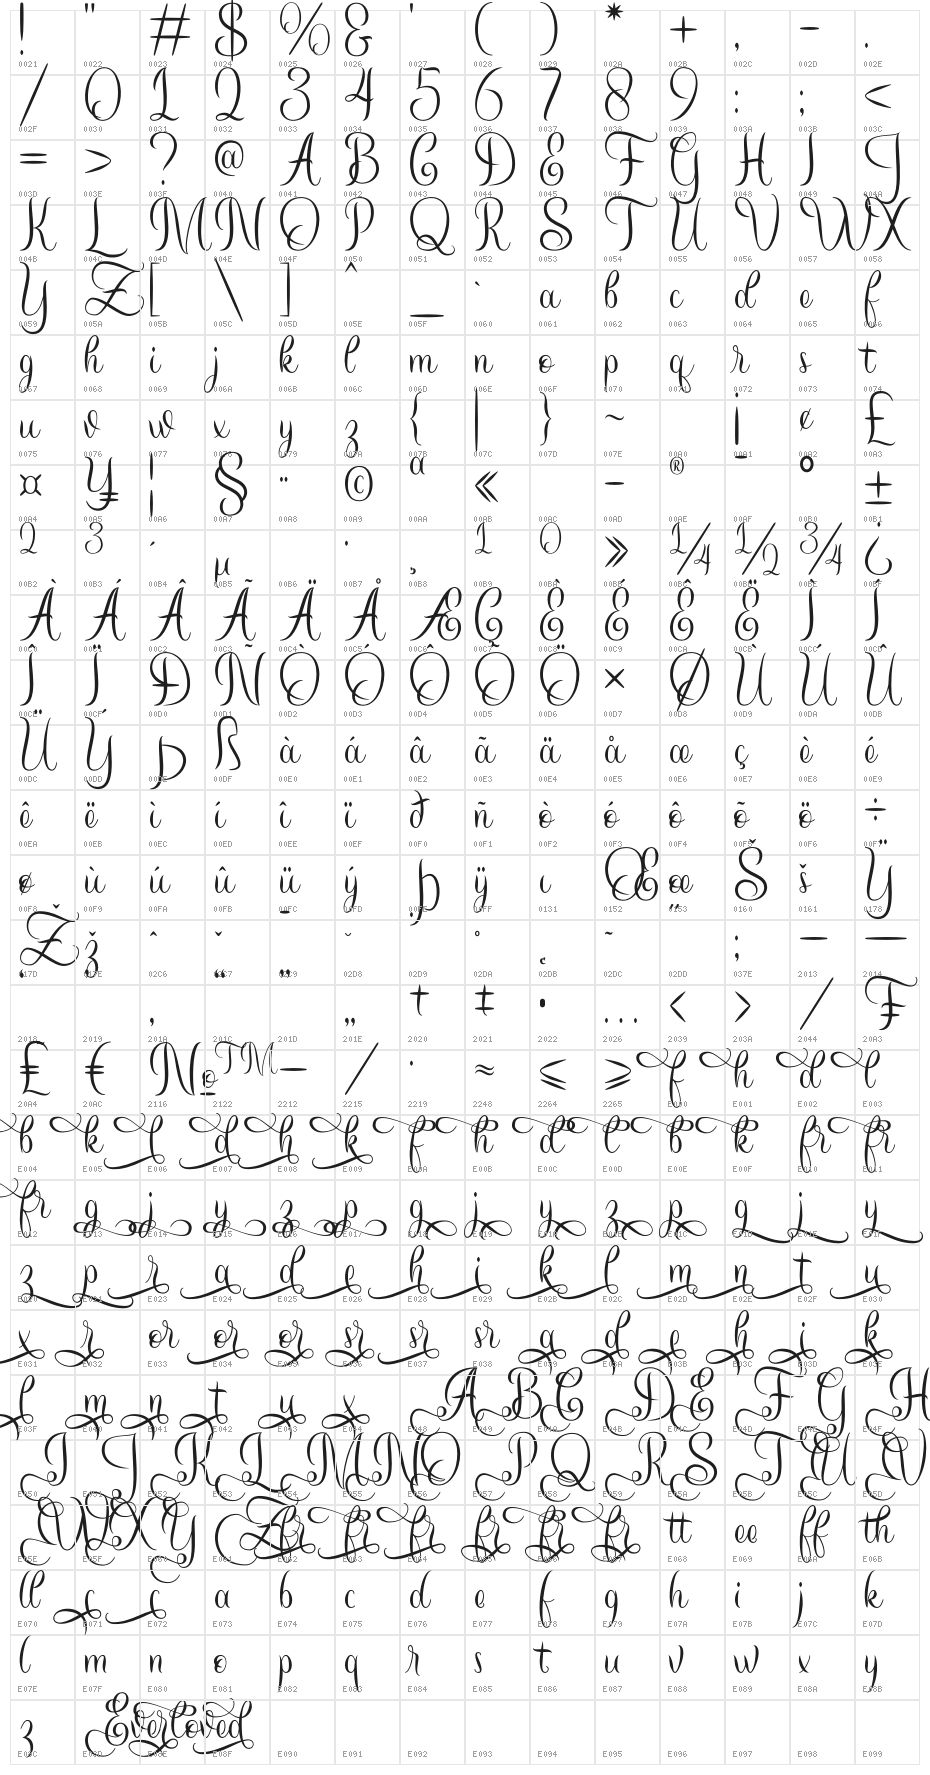 ! " # $ % & ' ( ) * + , - .
0021 0022 0023 0024 0025 0026 0027 0028 0029 002A 002B 002C 002D 002E
/ 0 1 2 3 4 5 6 7 8 9 : ; <
002F 0030 0031 0032 0033 0034 0035 0036 0037 0038 0039 003A 003B 003C
= > ? @ A B C D E F G H I J
003D 003E 003F 0040 0041 0042 0043 0044 0045 0046 0047 0048 0049 004A
K L M N O P Q R S T U V W X
004B 004C 004D 004E 004F 0050 0051 0052 0053 0054 0055 0056 0057 0058
Y Z [ \ ] ^ _ ` a b c d e f
0059 005A 005B 005C 005D 005E 005F 0060 0061 0062 0063 0064 0065 0066
g h i j k l m n o p q r s t
0067 0068 0069 006A 006B 006C 006D 006E 006F 0070 0071 0072 0073 0074
u v w x y z { | } ~ ¡ ¢ £
0075 0076 0077 0078 0079 007A 007B 007C 007D 007E 00A0 00A1 00A2 00A3
¤ ¥ ¦ § ¨ © ª « - ® ¯ ° ±
00A4 00A5 00A6 00A7 00A8 00A9 00AA 00AB 00AC 00AD 00AE 00AF 00B0 00B1
² ³ ´ µ · ¸ ¹ º » ¼ ½ ¾ ¿
00B2 00B3 00B4 00B5 00B6 00B7 00B8 00B9 00BA 00BB 00BC 00BD 00BE 00BF
À Á Â Ã Ä Å Æ Ç È É Ê Ë Ì Í
00C0 00C1 00C2 00C3 00C4 00C5 00C6 00C7 00C8 00C9 00CA 00CB 00CC 00CD
Î Ï Ð Ñ Ò Ó Ô Õ Ö × Ø Ù Ú Û
00CE 00CF 00D0 00D1 00D2 00D3 00D4 00D5 00D6 00D7 00D8 00D9 00DA 00DB
Ü Ý Þ ß à á â ã ä å æ ç è é
00DC 00DD 00DE 00DF 00E0 00E1 00E2 00E3 00E4 00E5 00E6 00E7 00E8 00E9
ê ë ì í î ï ð ñ ò ó ô õ ö ÷
00EA 00EB 00EC 00ED 00EE 00EF 00F0 00F1 00F2 00F3 00F4 00F5 00F6 00F7
ø ù ú û ü ý þ ÿ ı Œ œ Š š Ÿ
00F8 00F9 00FA 00FB 00FC 00FD 00FE 00FF 0131 0152 0153 0160 0161 0178
Ž ž ˆ ˇ ˘ ˚ ˛ ˜ ; – —
017D 017E 02C6 02C7 02C9 02D8 02D9 02DA 02DB 02DC 02DD 037E 2013 2014
‚ „ † ‡ • … ‹ › ⁄ ₣
2018 2019 201A 201C 201D 201E 2020 2021 2022 2026 2039 203A 2044 20A3
₤ € № ™ − ∕ ∙ ≈ ≤ ≥ f h d l
20A4 20AC 2116 2122 2212 2215 2219 2248 2264 2265 E000 E001 E002 E003
b k l d h k f h d l b k fr fr
E004 E005 E006 E007 E008 E009 E00A E00B E00C E00D E00E E00F E010 E011
fr g j y z p g j y z p g j y
E012 E013 E014 E015 E016 E017 E018 E019 E01A E01B E01C E01D E01E E01F
z p r a d e h i k l m n t u
E020 E021 E023 E024 E025 E026 E028 E029 E02B E02C E02D E02E E02F E030
x r or or or sr sr sr a d e h i k
E031 E032 E033 E034 E035 E036 E037 E038 E039 E03A E03B E03C E03D E03E
l m n t u x A B C D E F G H
E03F E040 E041 E042 E043 E044 E048 E049 E04A E04B E04C E04D E04E E04F
I J K L M N O P Q R S T U V
E050 E051 E052 E053 E054 E055 E056 E057 E058 E059 E05A E05B E05C E05D
W X Y Z fr fr fr fr fr fr tt ee ff th
E05E E05F E060 E061 E062 E063 E064 E065 E066 E067 E068 E069 E06A E06B
ll s s a b c d e f g h i j k
E070 E071 E072 E073 E074 E075 E076 E077 E078 E079 E07A E07B E07C E07D
l m n o p q r s t u v w x y
E07E E07F E080 E081 E082 E083 E084 E085 E086 E087 E088 E089 E08A E08B
z Everloved
E08C E08D E08E E08F E090 E091 E092 E093 E094 E095 E096 E097 E098 E099